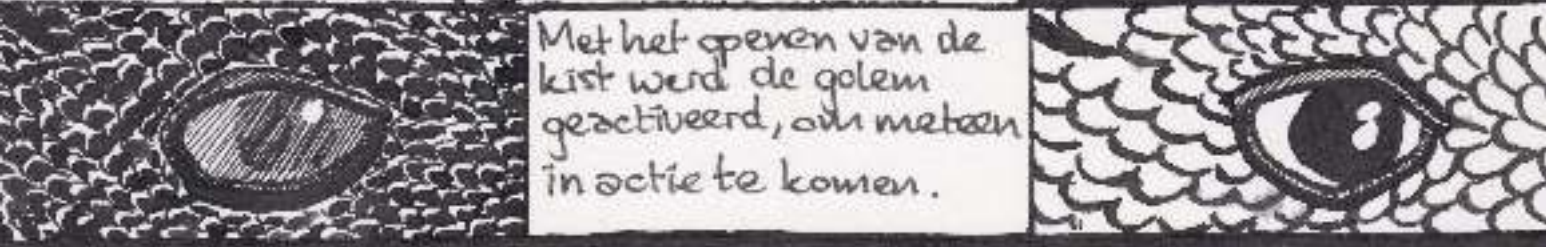 Met het openen van de
kist werd de golem
geactiveerd, om meteen
in actie te komen.